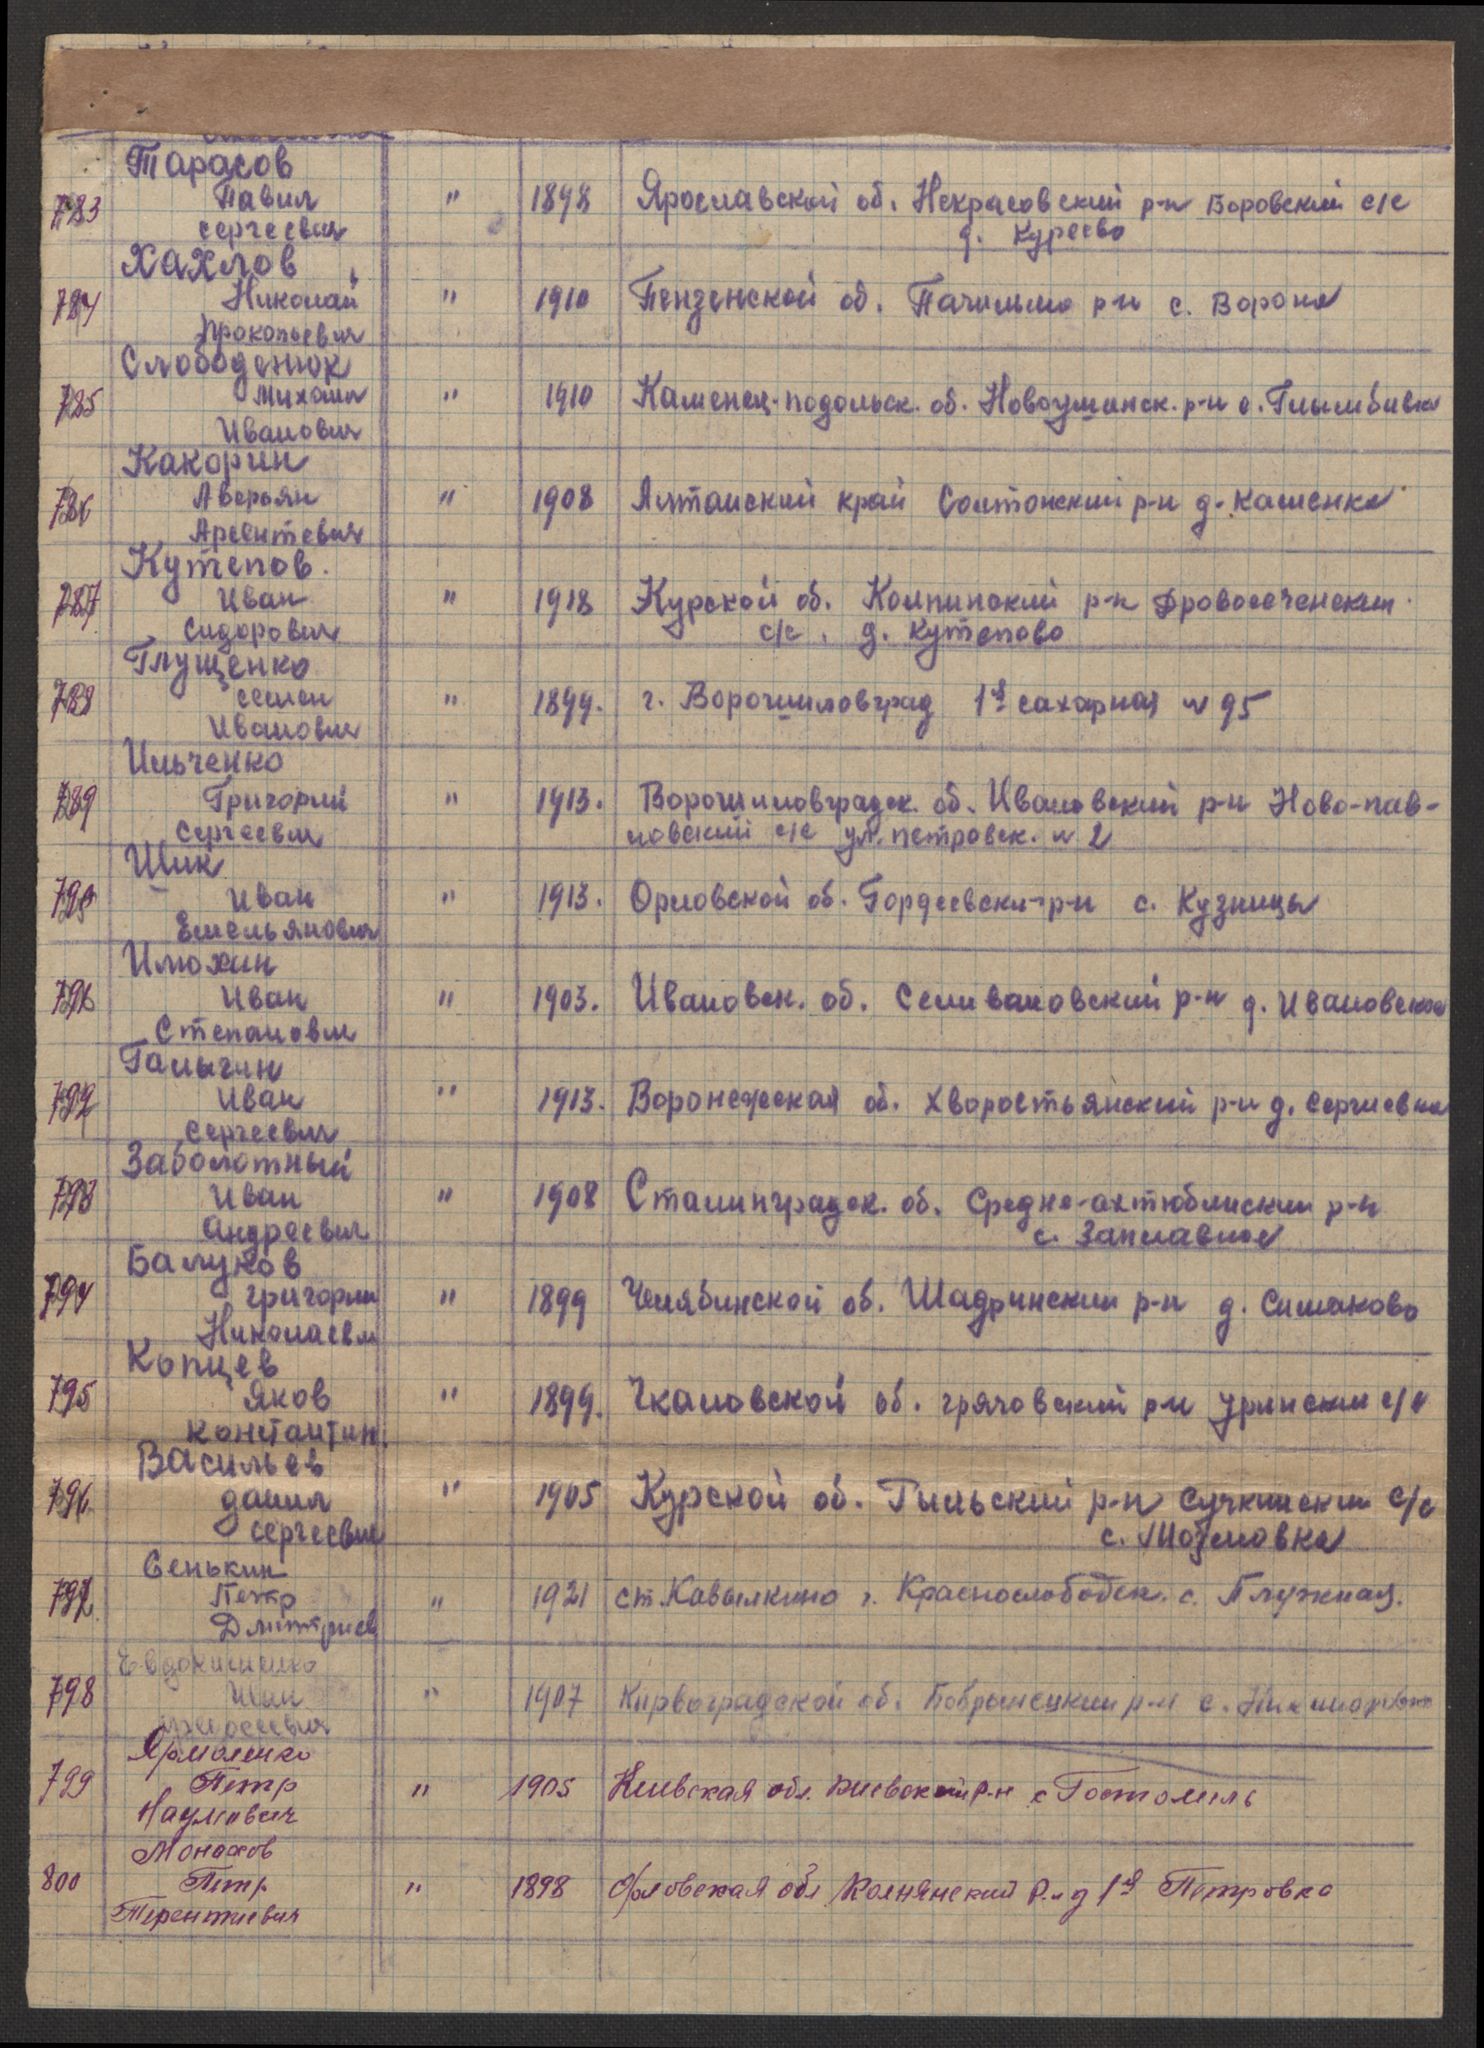 Тарасов
783 Павил " 1898 Ярославской об. Некрасовский р-н Боровский с/с
Сергеевич д. Куреево
Хахлов
784 Николай " 1910 Пензенской об. Пачильмо р-н с. Ворона
Прокопьевич
Слободенюк
785 Михаил " 1910 Каменец-подольск. об. Новоушинск. р-н с. Глымбивка
Иванович
Какорин
786 Аверьян " 1908 Алтайский край Солтонский р-н д. Каменка
Арсентевич
Кутепов.
787 Иван " 1918 Курской об. Колпинский р-н Дровосеченским
Сидорович с/с. д. Кутепово
Глущенко
788 Семен " 1899. г. Ворошиловград 1я сахарная № 95
Иванович
Ильченко
789 Григорий " 1913. Ворошиловградск. об. Ивановский р-н Ново-пав-
Сергеевич ловский с/с ул. петровск. № 2
Шик
790 Иван " 1913. Орловской об. Гордеевски-р-н с. Кузницы
Емельянович
Илюхин
791 Иван " 1903. Ивановск. об. Селивановский р-н д. Ивановская
Степанович
Галыгин
792 Иван " 1913. Воронежская об. Хворостьянский р-н д. Сергиевка
Сергеевич
Заболотный
793 Иван " 1908 Сталинградск. об. Средне-ахтюблиским р-н
Андреевич с. Заплавное
Балуков
794 Григории " 1899 Челябинской об. Шадринским р-н д. Симаково
Николаевич
Копцев
795 Яков " 1899. Чкаловской об. грячовский р-н уринским с/с
Константин.
Васильев
796 Данил " 1905 Курской об. Гыльский р-н Сучкинским с/с
Сергеевич с.
Сенькин
797 Петр " 1921 ст. Кавылкино г. Краснослободск. с. Плужная.
Дмитриев
Евдокименко
798 Иван " 1907 Кировоградской об. Бобрынецким р-н с.
Ярмоленко
799 Петр " 1905 Киевская обл. Киевский р-н с Гостомель
Наумович
Монахов
800 Петр " 1898 Орловская обл Колнянский р-н д 1я Петровка
Терентиевич